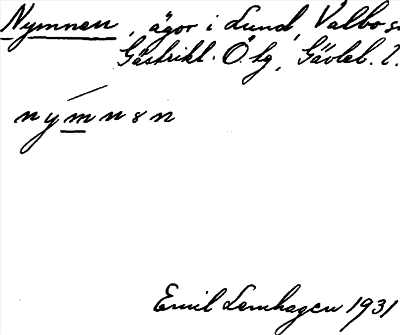 Nymnen, ägor i Lund, Valbo s
Gästrikl. Ö. tg, Gävleb. l.
nýmnən
Emil Lenhagen 1931